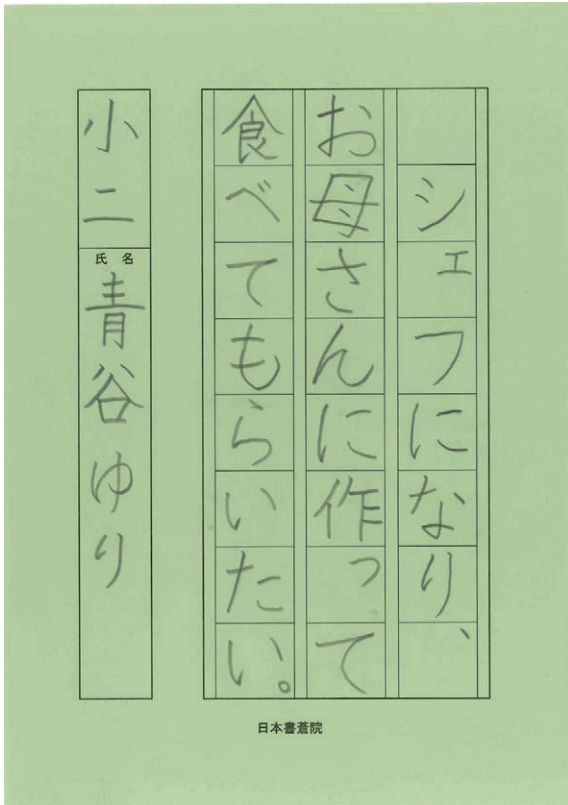 シェフになり、
お母さんに作って
食べてもらいたい。
小二
氏名
青谷ゆり
日本書蒼院